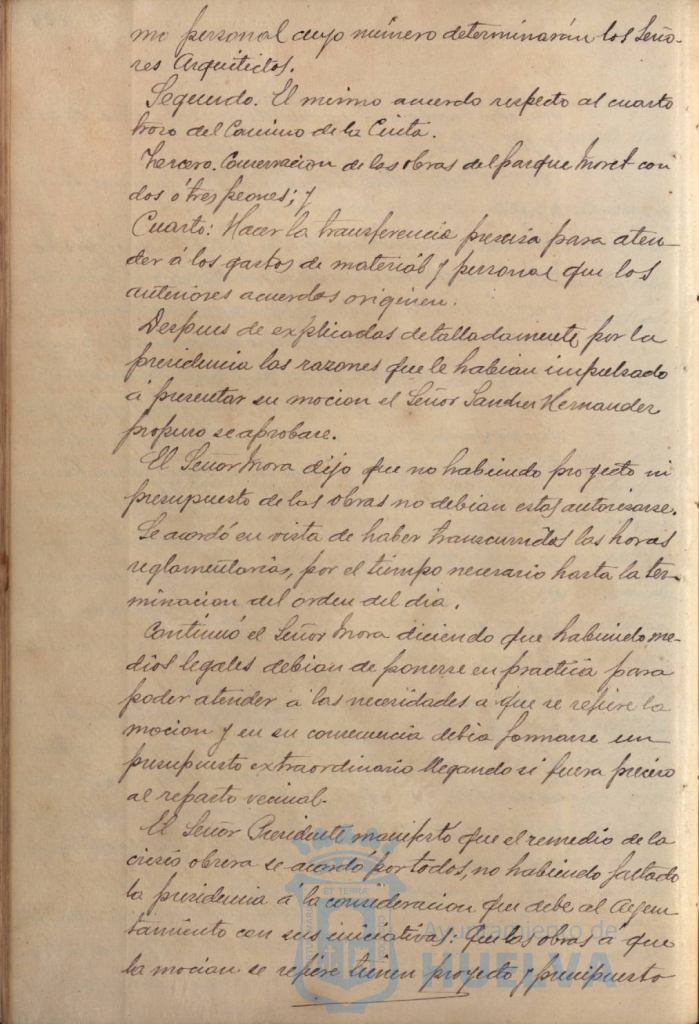 mo personal cuyo número determinarán los Seño-
res Arquitectos.
Segundo. El mismo acuerdo respecto al cuarto
trozo del Camino de la Cinta.
Tercero. Conservacion de las obras del parque Moret con
dos ó tres peones; y
Cuarto: Hacer la transferencia precisa para aten-
der á los gastos de material y personal que los
anteriores acuerdos originen.
Despues de explicadas detalladamente por la
presidencia las razones que le habian impulsado
á presentar su mocion el Señor Sanchez Hernandez
propuso se aprobase.
El Señor Mora dijo que no habiendo proyecto ni
presupuesto de las obras no debian estas autorisarse.
Se acordó en vista de haber transcurridos las horas
reglamentarias, por el tiempo necesario hasta la ter-
minacion del orden del dia.
Continuó el Señor Mora diciendo que habiendo me-
dios legales debian de ponerse en practica para
poder atender á las necesidades a que se refiere la
mocion y en su consecuencia debia formarse un
presupuesto extraordinario llegando si fuera preciso
al reparto vecinal.
El Señor Presidente manifestó que el remedio de la
crisis obrera se acordó por todos, no habiendo faltado
la presidencia á la consideracion que debe al Ayun-
tamiento con sus iniciativas: que las obras a que
la mocion se refiere tienen proyecto y presupuesto
ET TERRÆ
Ayuntamiento de
HUELVA